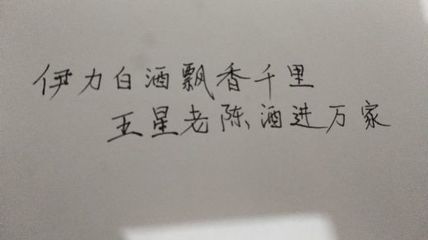 伊力白酒飘香千里
五星老陈酒进万家